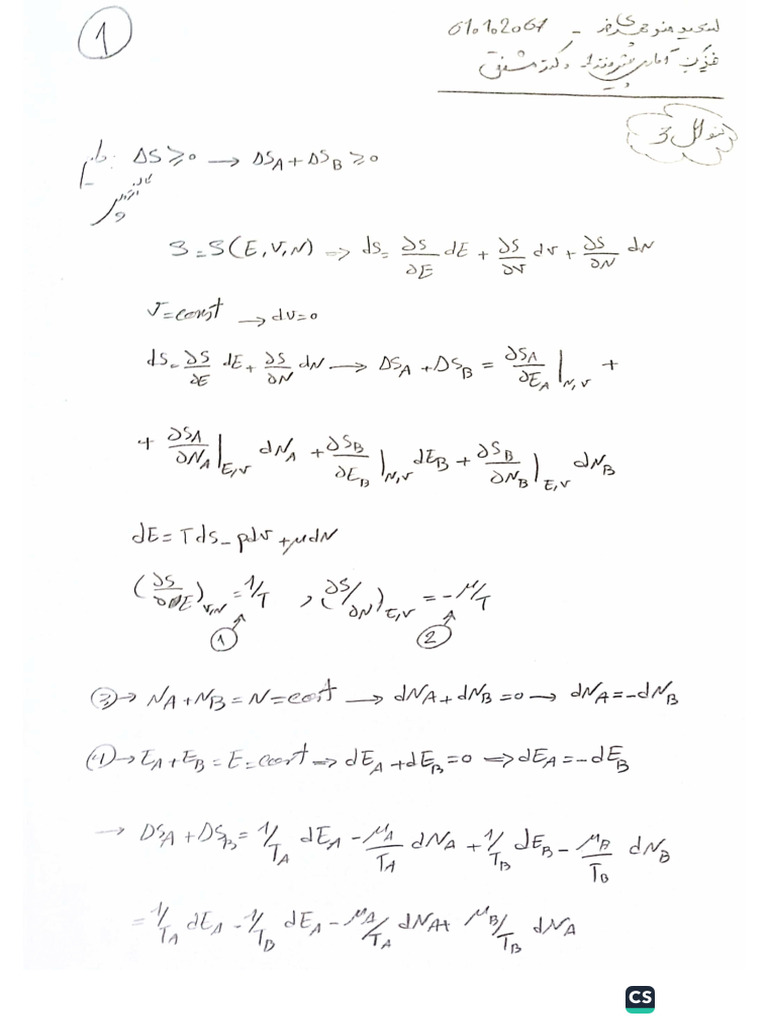 1
610102067
سوال 3
ΔS ≥ 0 → ΔS_A + ΔS_B ≥ 0
S = S(E, V, N) => ds = ∂S/∂E dE + ∂S/∂V dv + ∂S/∂N dN
V = const → dv = 0
ds = ∂S/∂E dE + ∂S/∂N dN → ΔS_A + ΔS_B = ∂S_A/∂E_A |_N,V +
+ ∂S_A/∂N_A |_E,V dN_A + ∂S_B/∂E_B |_N,V dE_B + ∂S_B/∂N_B |_E,V dN_B
dE = Tds - pdv + μdN
(∂S/∂E)_V,N = 1/T , (∂S/∂N)_E,V = -μ/T
1 2
→ N_A + N_B = N = const → dN_A + dN_B = 0 → dN_A = -dN_B
→ E_A + E_B = E = const → dE_A + dE_B = 0 => dE_A = -dE_B
→ ΔS_A + ΔS_B = 1/T_A dE_A - μ_A/T_A dN_A + 1/T_B dE_B - μ_B/T_B dN_B
= 1/T_A dE_A - 1/T_B dE_A - μ_A/T_A dN_A + μ_B/T_B dN_A
CS